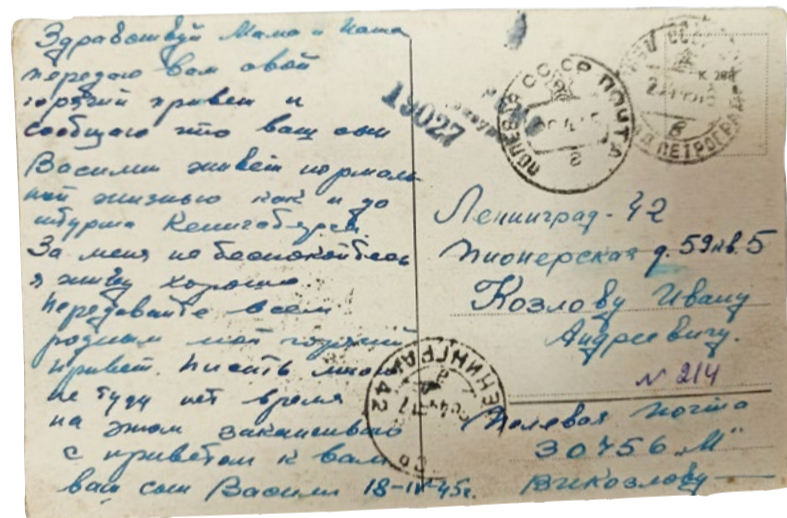 Здравствуй Мама и Папа
передаю вам свой
горячий привет и
сообщаю что ваш сын
Василий живёт нормаль
ной жизнью как и до
штурма Кенигсберга.
За меня не беспокойтесь
я живу хорошо
Передавайте всем
родным мой горячий
привет. Писать много
не буду нет время
на этом заканчиваю
с приветом к вам
ваш сын Василий 18-IV-45г.
19027
ПОЛЕВАЯ ПОЧТА СССР
в
СССР
ПЕТРОГРАД
в
Ленинград-42
Пионерская д. 59 кв. 5
Козлову Ивану
Андреевичу.
N 214
ЛЕНИНГРАД 42
Полевая почта
30756 „М"
В И Козлову